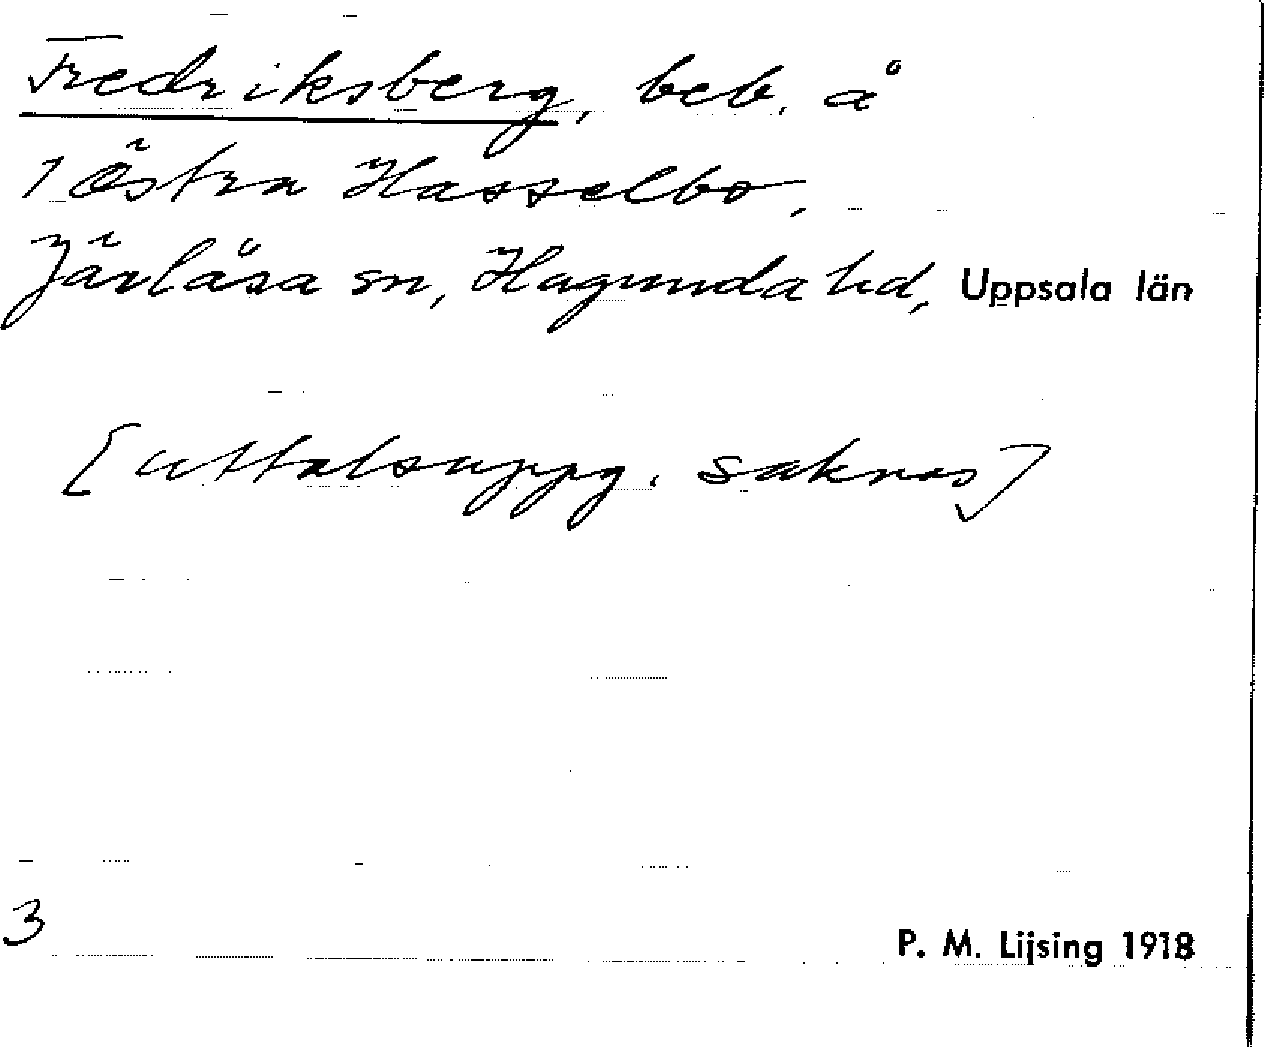 Fredriksberg, beb. å
1 Östra Hasselbo,
Järlåsa sn, Hagunda hd, Uppsala län
[uttalsuppg. saknas]
3
P. M. Lijsing 1918